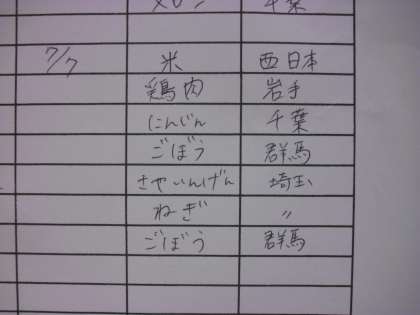 メロン 千葉
7/7 米 西日本
鶏肉 岩手
にんじん 千葉
ごぼう 群馬
さやいんげん 埼玉
ねぎ 〃
ごぼう 群馬